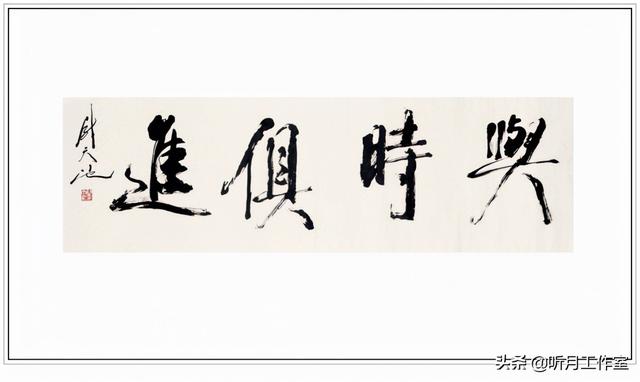 與時俱進
尉天池
头条 @听月工作室